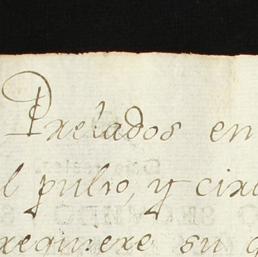 Prelados en
l pulso, y circ
requiere su